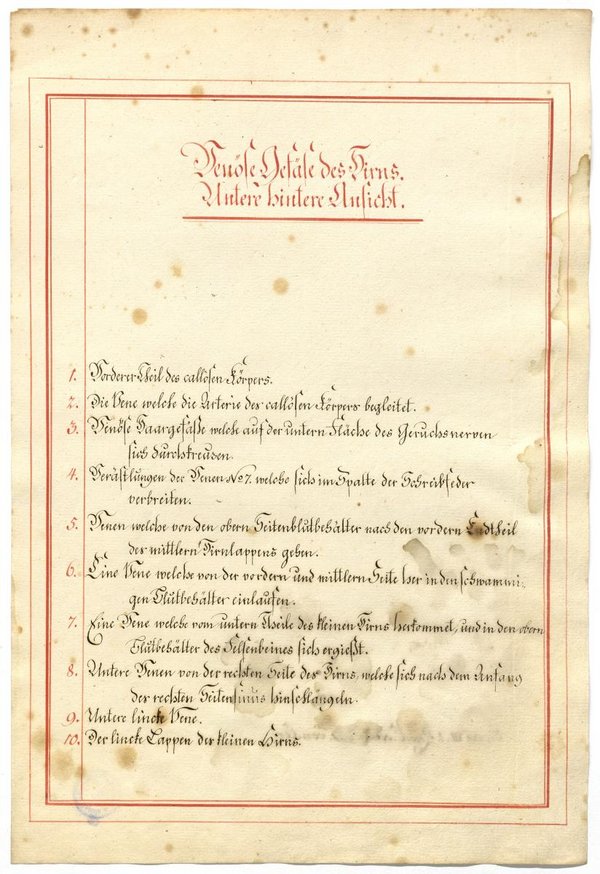 Venöse Gefäse des Hirns.
Untere hintere Ansicht.
1. Vorderer Theil des callösen Körpers.
2. Die Vene welche die Arterie des callösen Körpers begleitet.
3. Venöse Haargefässe welche auf der untern Fläche des Geruchsnerven
sich durchkreusen.
4. Verästlungen der Venen No 7. welche sich im Spalte der Schreibfeder
verbreiten.
5. Venen welche von den obern Seitenblutbehälter nach den vordern Endtheil
des mittlern Hirnlappens gehen.
6. Eine Vene welche von der vordern und mittlern Seite her in den schwammi-
gen Blutbehälter einlaufen.
7. Eine Vene welche vom untern Theile des kleinen Hirns herkommet, und in den obern
Blutbehälter des Felsenbeines sich ergießt.
8. Untere Venen von der rechten Seite des Hirns, welche sich nach dem Anfang
der rechten Seitensinus hinschlängeln.
9. Untere lincke Vene.
10. Der lincke Lappen der kleinen Hirns.